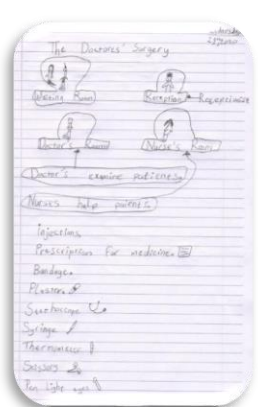 The Doctores' Surgery
Waiting Room
Reception
Receptionist
Doctor's Room
Nurse's Room
Doctor's examine patients.
Nurses help patients.
Injections
Prescription for medicine.
Bandage.
Plasters
Syringe
Pen light eyes